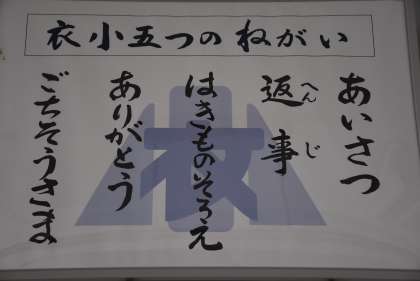 衣小五つのねがい
あいさつ
返事
へんじ
はきものそろえ
ありがとう
ごちそうさま
衣